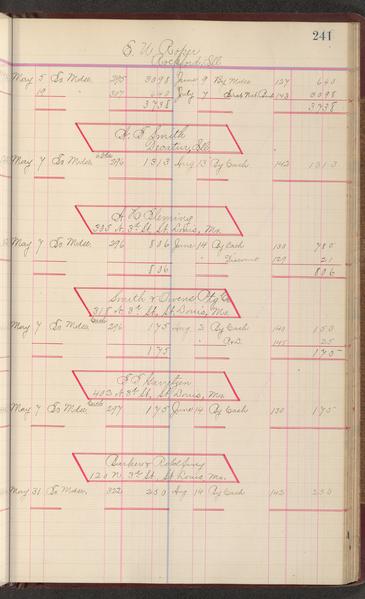 241
Rockford, Ill
May 5 To Mdse 295 3098 June 9 By Mdse 127 640
19 307 640 July 7 143 3098
3738 3738
Smith
Decatur, Ill
May 7 To Mdse 296 1313 Aug 13 By Cash 142 1313
Fleming
N 3rd St, St Louis, Mo
May 7 To Mdse 296 806 June 14 By Cash 130 780
" Discount 129 21
806 806
Smith & Owens Ptg Co
318 N 3rd St, St Louis, Mo
May 7 To Mdse 296 175 Aug 2 By Cash 140 150
145 25
175 175
403 N 3rd St, St Louis, Mo
May 7 To Mdse, 297 175 June 14 By Cash 130 175
Barker &
120 N. 3rd St, St Louis Mo.
May 31 To Mdse, 322 250 Aug 14 By Cash 142 250